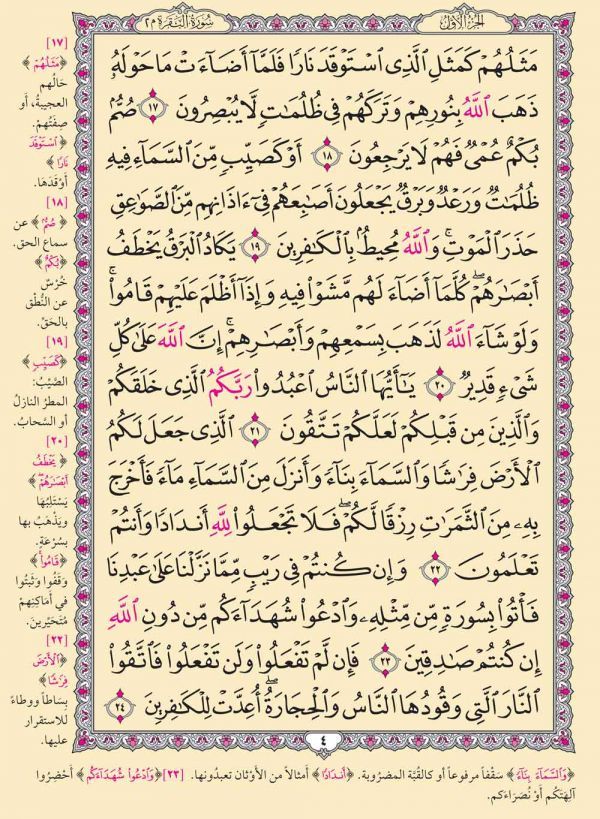 الجزء الأول
سورة البقرة ٢
مَثَلُهُمْ كَمَثَلِ ٱلَّذِى ٱسْتَوْقَدَ نَارًا فَلَمَّآ أَضَآءَتْ مَا حَوْلَهُۥ
ذَهَبَ ٱللَّهُ بِنُورِهِمْ وَتَرَكَهُمْ فِى ظُلُمَٰتٍ لَّا يُبْصِرُونَ ١٧ صُمٌّۢ
بُكْمٌ عُمْىٌ فَهُمْ لَا يَرْجِعُونَ ١٨ أَوْ كَصَيِّبٍ مِّنَ ٱلسَّمَآءِ فِيهِ
ظُلُمَٰتٌ وَرَعْدٌ وَبَرْقٌ يَجْعَلُونَ أَصَٰبِعَهُمْ فِىٓ ءَاذَانِهِم مِّنَ ٱلصَّوَٰعِقِ
حَذَرَ ٱلْمَوْتِ ۚ وَٱللَّهُ مُحِيطٌۢ بِٱلْكَٰفِرِينَ ١٩ يَكَادُ ٱلْبَرْقُ يَخْطَفُ
أَبْصَٰرَهُمْ ۖ كُلَّمَآ أَضَآءَ لَهُم مَّشَوْا۟ فِيهِ وَإِذَآ أَظْلَمَ عَلَيْهِمْ قَامُوا۟ ۚ
وَلَوْ شَآءَ ٱللَّهُ لَذَهَبَ بِسَمْعِهِمْ وَأَبْصَٰرِهِمْ ۚ إِنَّ ٱللَّهَ عَلَىٰ كُلِّ
شَىْءٍ قَدِيرٌ ٢٠ يَٰٓأَيُّهَا ٱلنَّاسُ ٱعْبُدُوا۟ رَبَّكُمُ ٱلَّذِى خَلَقَكُمْ
وَٱلَّذِينَ مِن قَبْلِكُمْ لَعَلَّكُمْ تَتَّقُونَ ٢١ ٱلَّذِى جَعَلَ لَكُمُ
ٱلْأَرْضَ فِرَٰشًا وَٱلسَّمَآءَ بِنَآءً وَأَنزَلَ مِنَ ٱلسَّمَآءِ مَآءً فَأَخْرَجَ
بِهِۦ مِنَ ٱلثَّمَرَٰتِ رِزْقًا لَّكُمْ ۖ فَلَا تَجْعَلُوا۟ لِلَّهِ أَندَادًا وَأَنتُمْ
تَعْلَمُونَ ٢٢ وَإِن كُنتُمْ فِى رَيْبٍ مِّمَّا نَزَّلْنَا عَلَىٰ عَبْدِنَا
فَأْتُوا۟ بِسُورَةٍ مِّن مِّثْلِهِۦ وَٱدْعُوا۟ شُهَدَآءَكُم مِّن دُونِ ٱللَّهِ
إِن كُنتُمْ صَٰدِقِينَ ٢٣ فَإِن لَّمْ تَفْعَلُوا۟ وَلَن تَفْعَلُوا۟ فَٱتَّقُوا۟
ٱلنَّارَ ٱلَّتِى وَقُودُهَا ٱلنَّاسُ وَٱلْحِجَارَةُ ۖ أُعِدَّتْ لِلْكَٰفِرِينَ ٢٤
٤
[١٧]
﴿مَثَلُهُمْ﴾
حَالُهم
العجيبةُ، أو
صِفَتُهُمْ.
﴿ٱسْتَوْقَدَ
نَارًا﴾
أَوْقَدَهَا.
[١٨]
﴿صُمٌّ﴾ عن
سماع الحق.
﴿بُكْمٌ﴾
خُرْسٌ
عن النُّطْقِ
بالحَقّ.
[١٩]
﴿كَصَيِّبٍ﴾
الصَّيِّبُ:
المطرُ النازلُ
أو السَّحابُ.
[٢٠]
﴿يَخْطَفُ
أَبْصَٰرَهُمْ﴾
يَسْتَلِبُهَا
ويَذْهَبُ بها
بسُرْعَةٍ.
﴿قَامُوا۟﴾
وَقَفُوا وَثَبَتُوا
في أَمَاكِنِهِمْ
مُتَحَيِّرينَ.
[٢٢]
﴿ٱلْأَرْضَ
فِرَٰشًا﴾
بِسَاطاً ووِطَاءً
للاستقرار
عليها.
﴿وَٱلسَّمَآءَ بِنَآءً﴾ سَقْفاً مرفوعاً أو كالقُبَّة المضروبة. ﴿أَندَادًا﴾ أمثالاً من الأوْثان تعبدُونها. [٢٣] ﴿وَٱدْعُوا۟ شُهَدَآءَكُم﴾ أَحْضِرُوا
آلِهَتَكُم أَوْ نُصَرَاءَكم.